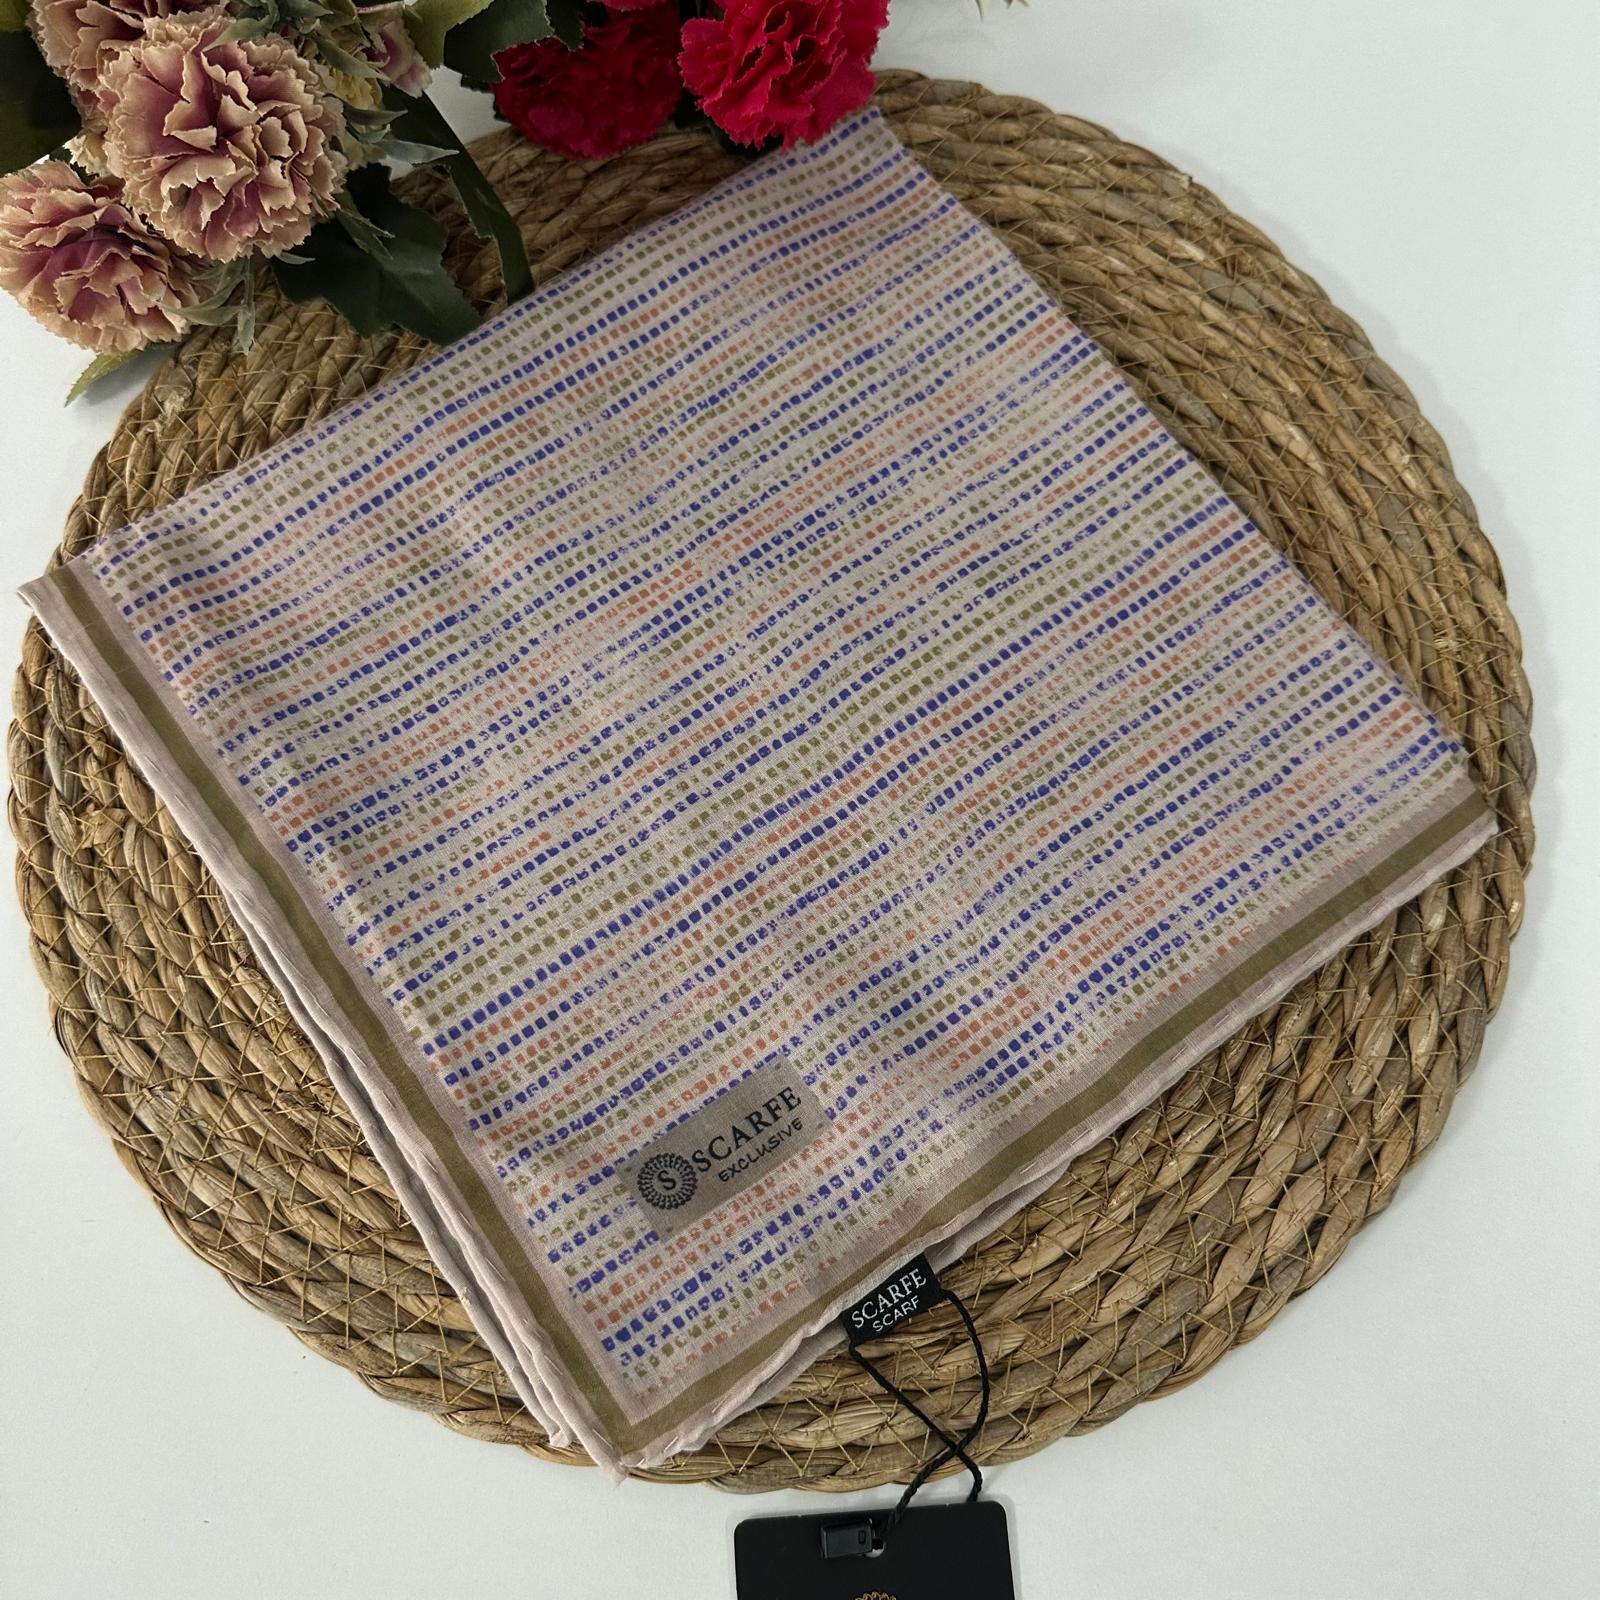 S
SCARFE
EXCLUSIVE
SCARFE
SCARF